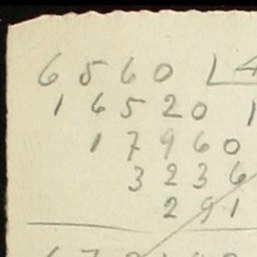 6560 4
16520 1
17960
3236
291